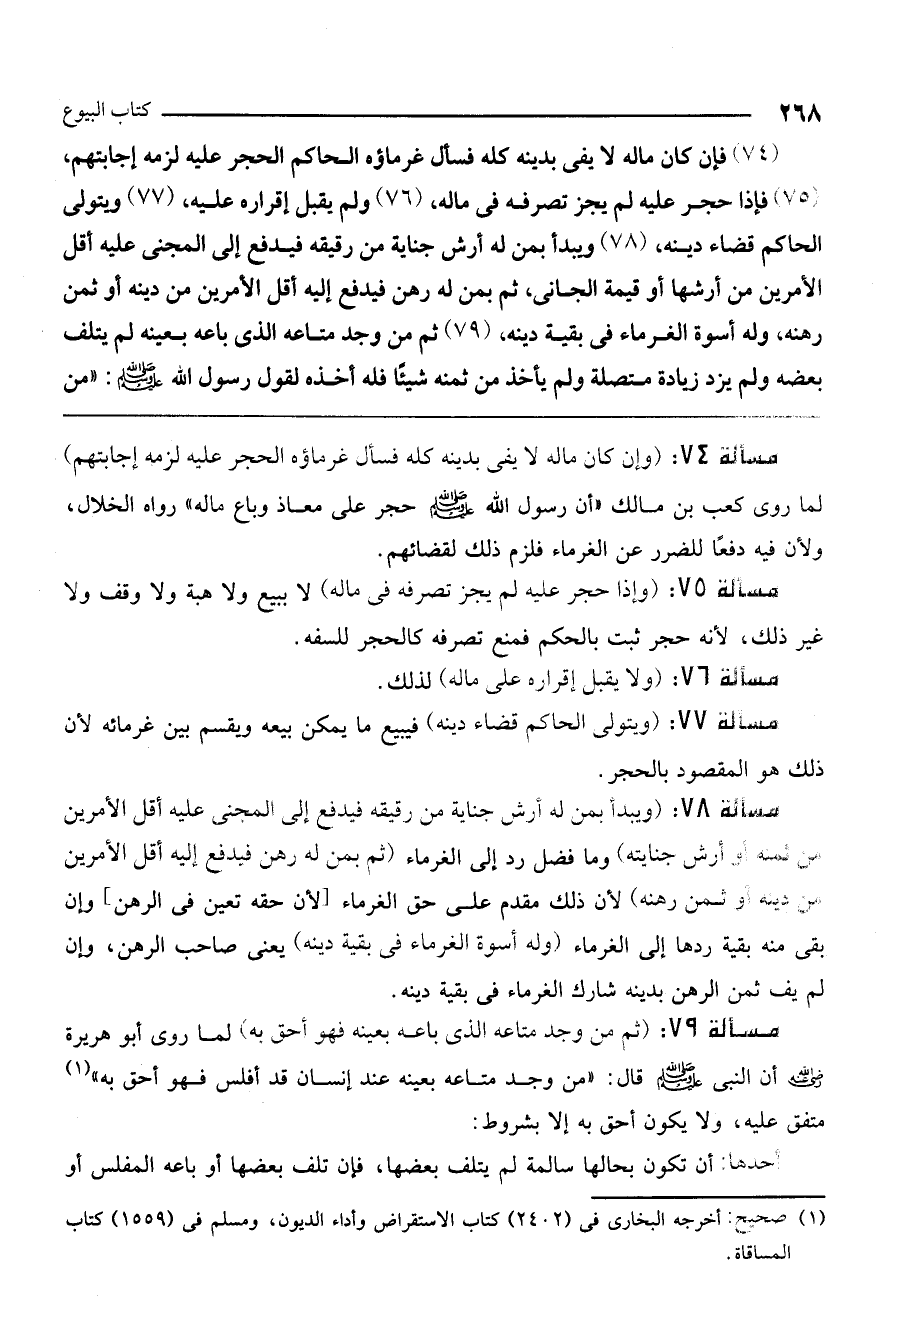 ٢٦٨ كتاب البيوع
(٧٤) فإن كان ماله لا يفى بدينه كله فسأل غرماؤه الحاكم الحجر عليه لزمه إجابتهم،
(٧٥) فإذا حجر عليه لم يجز تصرفه فى ماله، (٧٦) ولم يقبل إقراره عليه، (٧٧) ويتولى
الحاكم قضاء دينه، (٧٨) ويبدأ بمن له أرش جناية من رقيقه فيدفع إلى المجنى عليه أقل
الأمرين من أرشها أو قيمة الجانى، ثم بمن له رهن فيدفع إليه أقل الأمرين من دينه أو ثمن
رهنه، وله أسوة الغرماء فى بقية دينه، (٧٩) ثم من وجد متاعه الذى باعه بعينه لم يتلف
بعضه ولم يزد زيادة متصلة ولم يأخذ من ثمنه شيئًا فله أخذه لقول رسول الله ﷺ: «من
مسألة ٧٤: (وإن كان ماله لا يفى بدينه كله فسأل غرماؤه الحجر عليه لزمه إجابتهم)
لما روى كعب بن مالك «أن رسول الله ﷺ حجر على معاذ وباع ماله» رواه الخلال،
ولأن فيه دفعًا للضرر عن الغرماء فلزم ذلك لقضائهم.
مسألة ٧٥: (وإذا حجر عليه لم يجز تصرفه فى ماله) لا ببيع ولا هبة ولا وقف ولا
غير ذلك، لأنه حجر ثبت بالحكم فمنع تصرفه كالحجر للسفه.
مسألة ٧٦: (ولا يقبل إقراره على ماله) لذلك.
مسألة ٧٧: (ويتولى الحاكم قضاء دينه) فيبيع ما يمكن بيعه ويقسم بين غرمائه لأن
ذلك هو المقصود بالحجر.
مسألة ٧٨: (ويبدأ بمن له أرش جناية من رقيقه فيدفع إلى المجنى عليه أقل الأمرين
من ثمنه أو أرش جنايته) وما فضل رد إلى الغرماء (ثم بمن له رهن فيدفع إليه أقل الأمرين
من دينه أو ثمن رهنه) لأن ذلك مقدم على حق الغرماء [لأن حقه تعين فى الرهن] وإن
بقى منه بقية ردها إلى الغرماء (وله أسوة الغرماء فى بقية دينه) يعنى صاحب الرهن، وإن
لم يف ثمن الرهن بدينه شارك الغرماء فى بقية دينه.
مسألة ٧٩: (ثم من وجد متاعه الذى باعه بعينه فهو أحق به) لما روى أبو هريرة
رضي الله عنه أن النبى ﷺ قال: «من وجد متاعه بعينه عند إنسان قد أفلس فهو أحق به»(١)
متفق عليه، ولا يكون أحق به إلا بشروط:
أحدها: أن تكون بحالها سالمة لم يتلف بعضها، فإن تلف بعضها أو باعه المفلس أو
(١) صحيح: أخرجه البخارى فى (٢٤٠٢) كتاب الاستقراض وأداء الديون، ومسلم فى (١٥٥٩) كتاب
المساقاة.